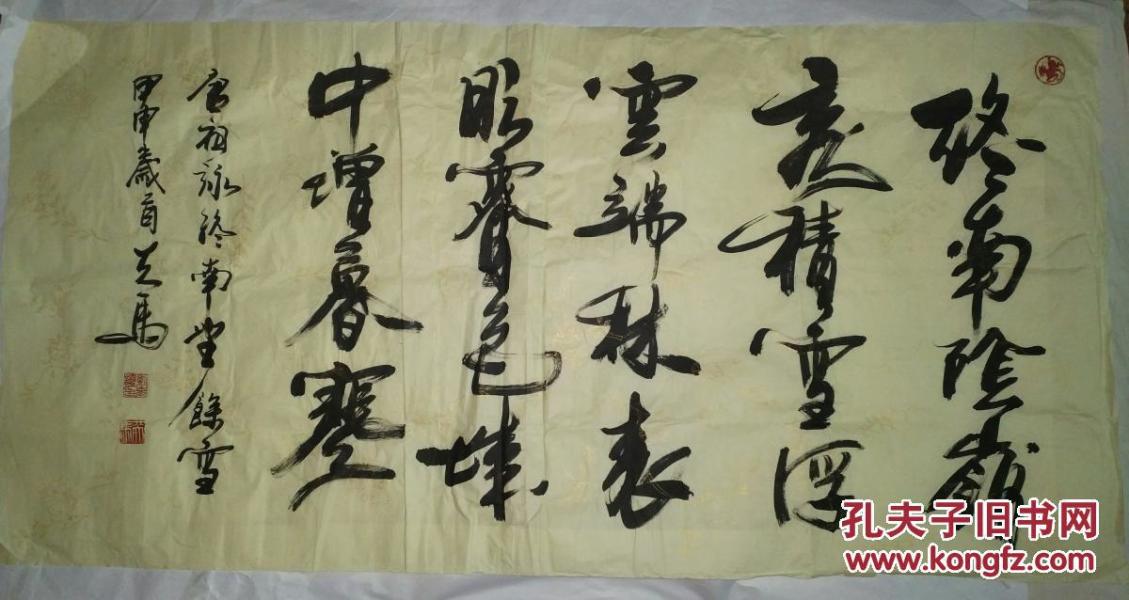 終南陰嶺
秀積雪浮
雲端林表
明霽色城
中增暮寒
唐祖詠終南望餘雪
甲申歲首
孔夫子旧书网
www.kongfz.com